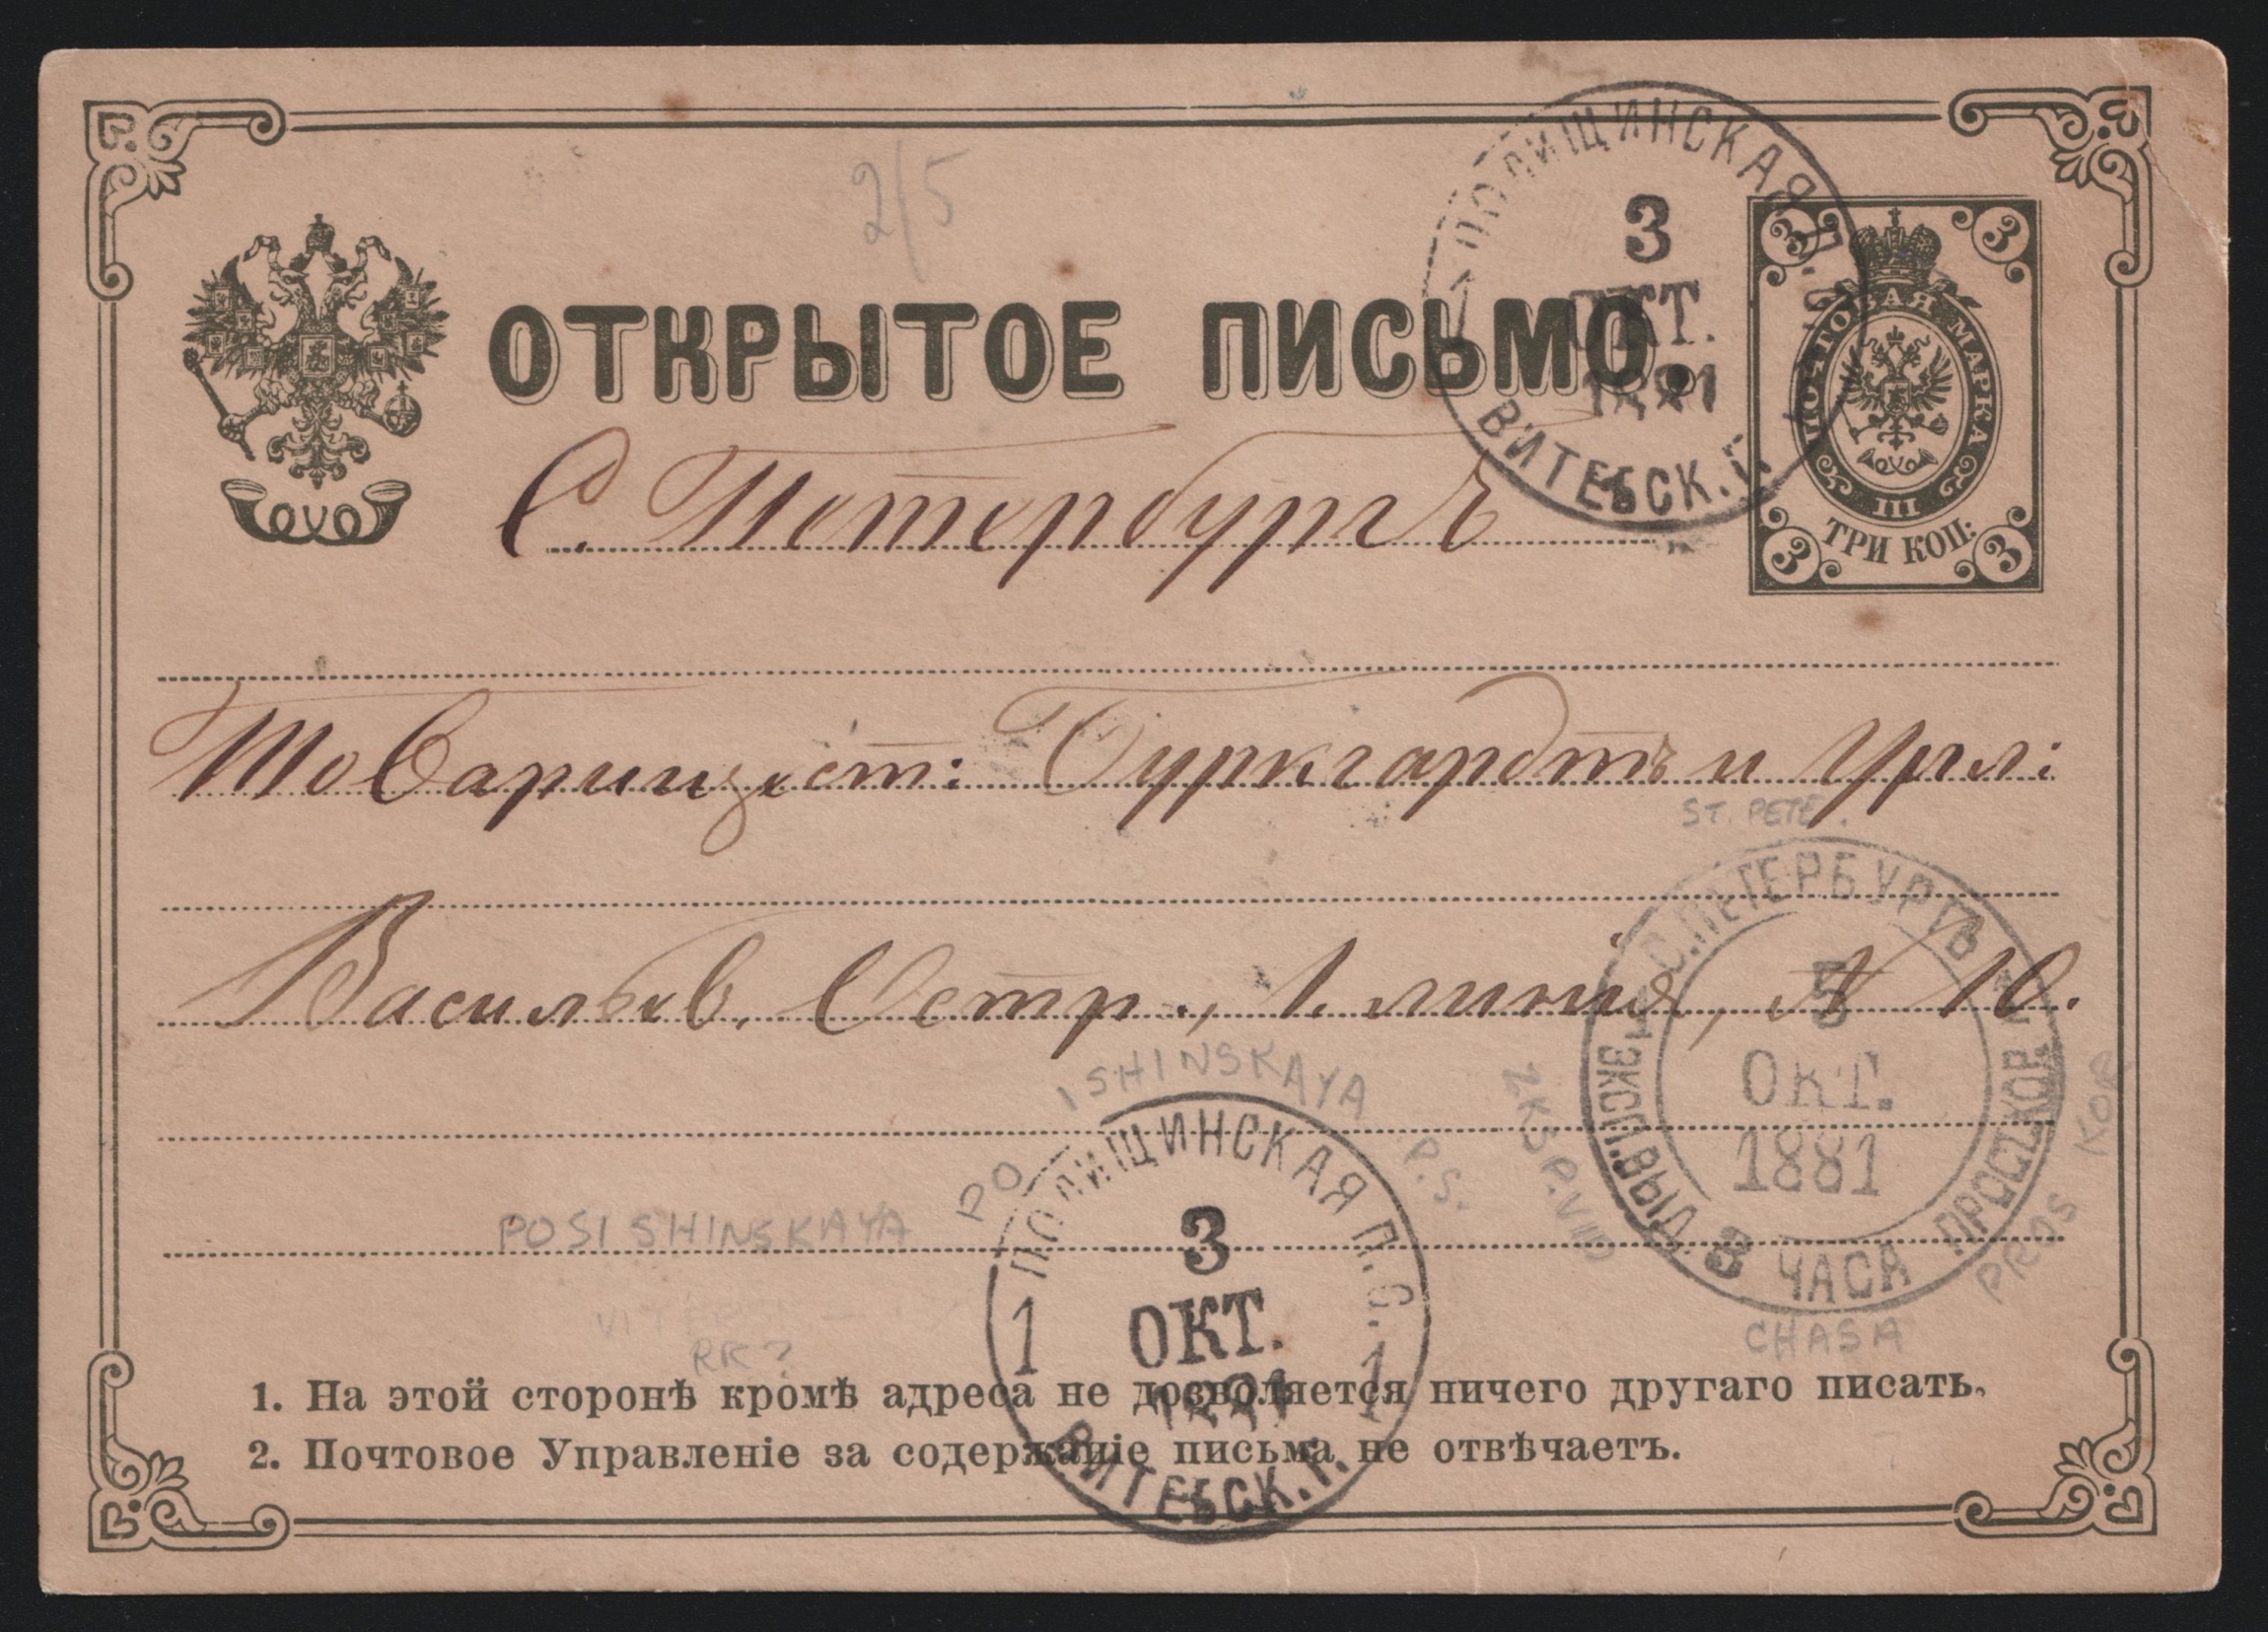 2/5
ОТКРЫТОЕ ПИСЬМО.
3
ОКТ.
1881
ВИТЕБСК. Г.
3 3
ПОЧТОВАЯ МАРКА
III
ТРИ КОП:
3 3
С. Петербургъ
Товарищест: Буркгардтъ и Урл:
Васильев. Остр., 1. линія, № 10.
ST. PETE.
С.ПЕТЕРБУРГЪ
5
ОКТ.
1881
ЭКСП. ВЫД. 3 ЧАСА ПРОСТ. КОР.
PROS KOR
CHASA
PO ISHINSKAYA P.S.
ЩИНСКАЯ П. С.
1 3 1
ОКТ.
1881
ВИТЕБСК. Г.
POSISHINSKAYA
RK?
1. На этой сторонѣ кромѣ адреса не дозволяется ничего другаго писать.
2. Почтовое Управленіе за содержаніе письма не отвѣчаетъ.